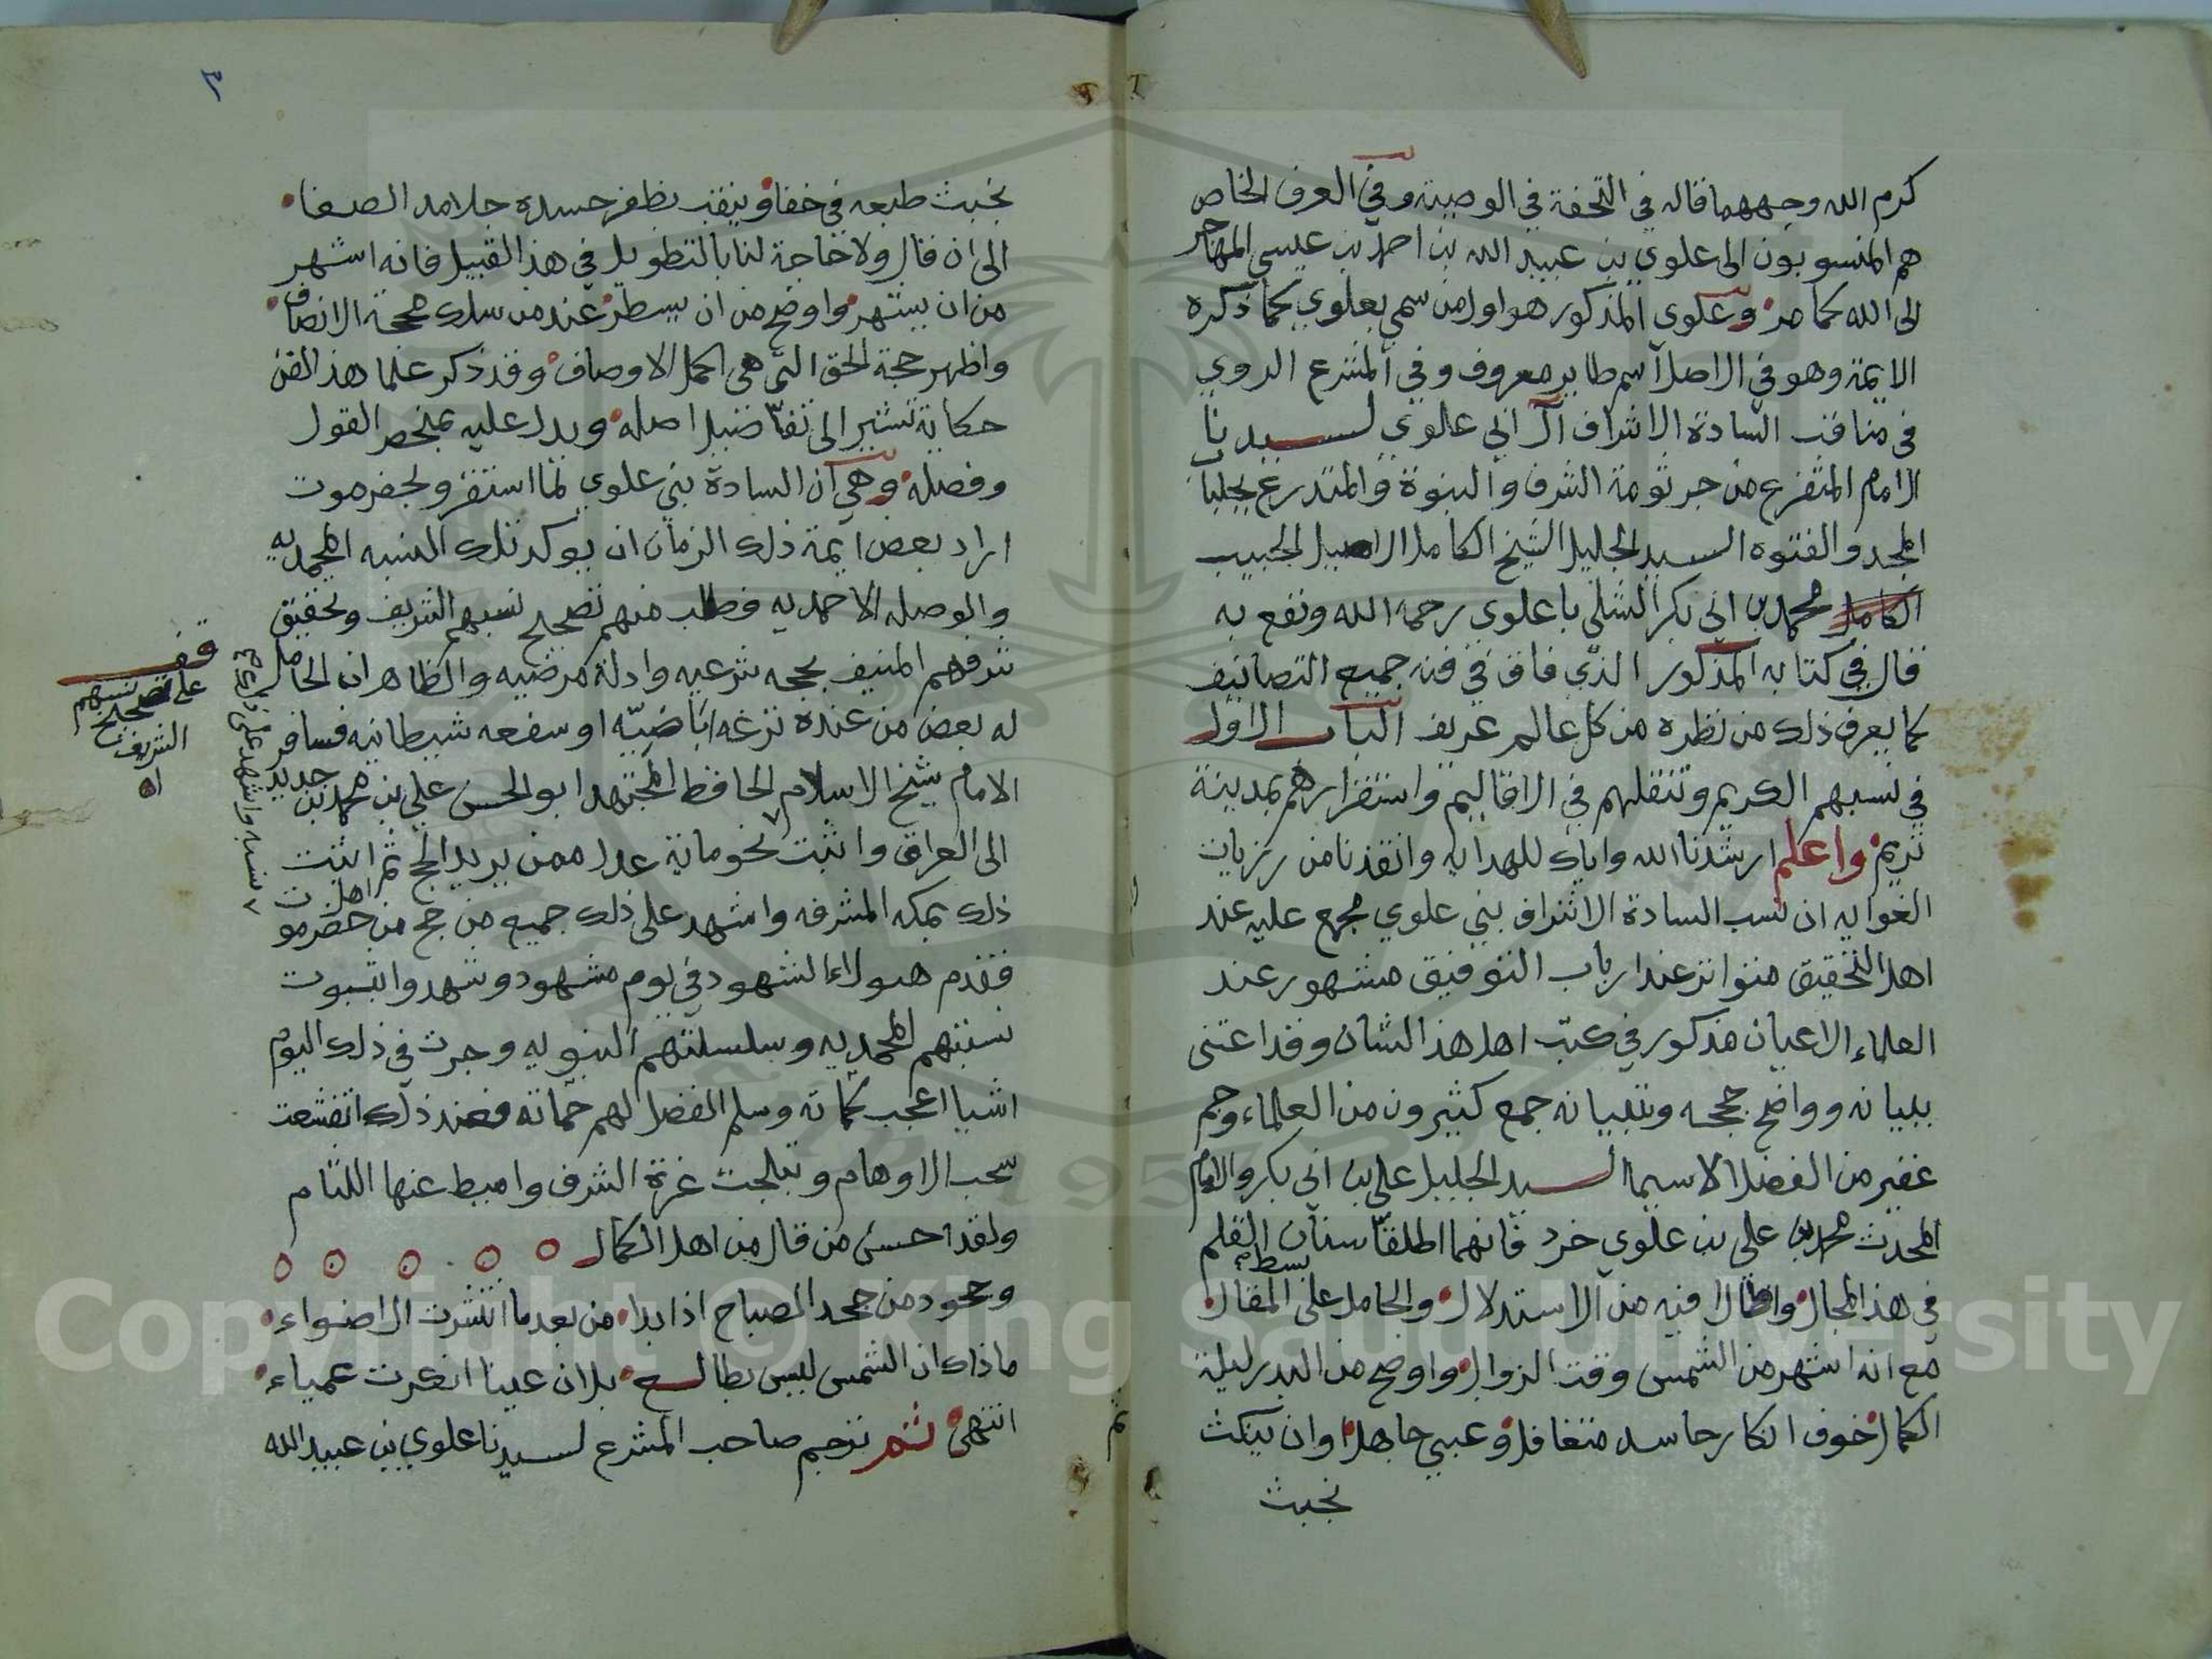 كرم الله وجههما قاله في التحفة في الوصية وفي العرف الخاص
هم المنسوبون الى علوي بن عبيد الله بن احمد بن عيسى المهاجر
الى الله كما مر وعلوي المذكور هو اول من سمي بعلوي كما ذكره
الايمة وهو في الاصل اسم طاير معروف وفي المشرع الروي
في مناقب السادة الاشراف آل ابي علوي لسيدنا
الامام المتفرع من جرثومة الشرف والنبوة والمتدرع بجلباب
المجد والفتوه السيد الجليل الشيخ الكامل الاصيل الحبيب
الكامل محمد بن ابي بكر الشلي باعلوي رحمه الله ونفع به
قال في كتابه المذكور الذي فاق في فنه جميع التصانيف
كما يعرف ذلك من نظره من كل عالم عريف الباب الاول
في نسبهم الكريم وتنقلهم في الاقاليم واستقرارهم بمدينة
تريم واعلم ارشدنا الله واياك للهدايه وانقذنا من رزيات
الغوايه ان نسب السادة الاشراف بني علوي مجمع عليه عند
اهل التحقيق متواتر عند ارباب التوفيق مشهور عند
العلماء الاعيان مذكور في كتب اهل هذا الشان وقد اعتنى
ببيانه وواضح حججه وتبيانه جمع كثيرون من العلماء وجم
غفير من الفضلا لاسيما السيد الجليل علي بن ابي بكر والامام
المحدث محمد بن علي بن علوي خرد فانهما اطلقا سنان القلم
في هذا المجال واطالا فيه من الاستدلال والحامل على بسط المقال
مع انه اشهر من الشمس وقت الزوال واوضح من البدر ليلة
الكمال خوف انكار حاسد متغافل وغبي جاهل وان ينكث
بخبث
٣
بخبث طبعه في خفا وينقب بظفر حسده جلامد الصفا
الى ان قال ولا حاجة لنا بالتطويل في هذا القبيل فانه اشهر
من ان يشتهر واوضح من ان يسطر عند من سلك محجة الانصاف
واظهر حجة الحق التي هي اكمل الاوصاف وقد ذكر علما هذا الفن
حكاية تشير الى تفاضيل اصله ويدل عليه بمنحصر القول
وفصله وهي ان السادة بني علوي لما استقرو بحضرموت
اراد بعض ايمة ذلك الزمان ان يوكد تلك النسبه المحمديه
والوصله الاحمديه فطلب منهم تصحيح نسبهم الشريف وتحقيق
شرفهم المنيف بحجه شرعيه وادلة مرضيه والظاهر ان الحامل
له بعض من عنده نزغه اباضيّه او سفعه شيطانيه فسافر
الامام شيخ الاسلام الحافظ المجتهد ابو الحسن علي بن محمد بن جديد
الى العراق واثبت نحو ماية عدل ممن يريد الحج ثم اثبت
ذلك بمكه المشرفه واشهد على ذلك جميع من حج من اهل حضرموت
فقدم هولاء الشهود في يوم مشهود وشهدوا بثبوت
نسبتهم المحمديه وسلسلتهم النبويه وجرت في ذلك اليوم
اشيا اعجب كماته وسلم الفضل لهم حماته فعند ذلك انقشعت
سحب الاوهام وتبلجت غرة الشرف واميط عنها اللثام
ولقد احسن من قال من اهل الكمال
وجحود من جحد المصباح اذا بدا من بعد ما انتشرت الاضواء
ماذاك ان الشمس ليس بطالع بل ان عينا انكرت عمياء
انتهى ثم ترجم صاحب المشرع لسيدنا علوي بن عبيد الله
قف
على تصحيح نسبهم
الشريف
اه